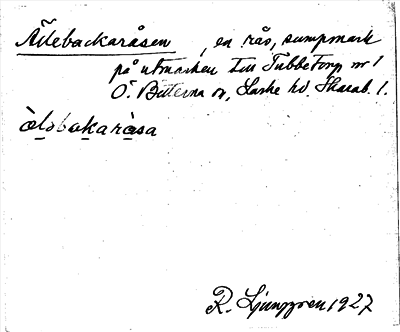 Ällebackaråsen, en rås, sumpmark
på utmarken till Tubbetorp nr 1
Ö. Bitterna sn, Laske hd. Skarab. l.
àlǝbakaràsa
R. Ljunggren 1927